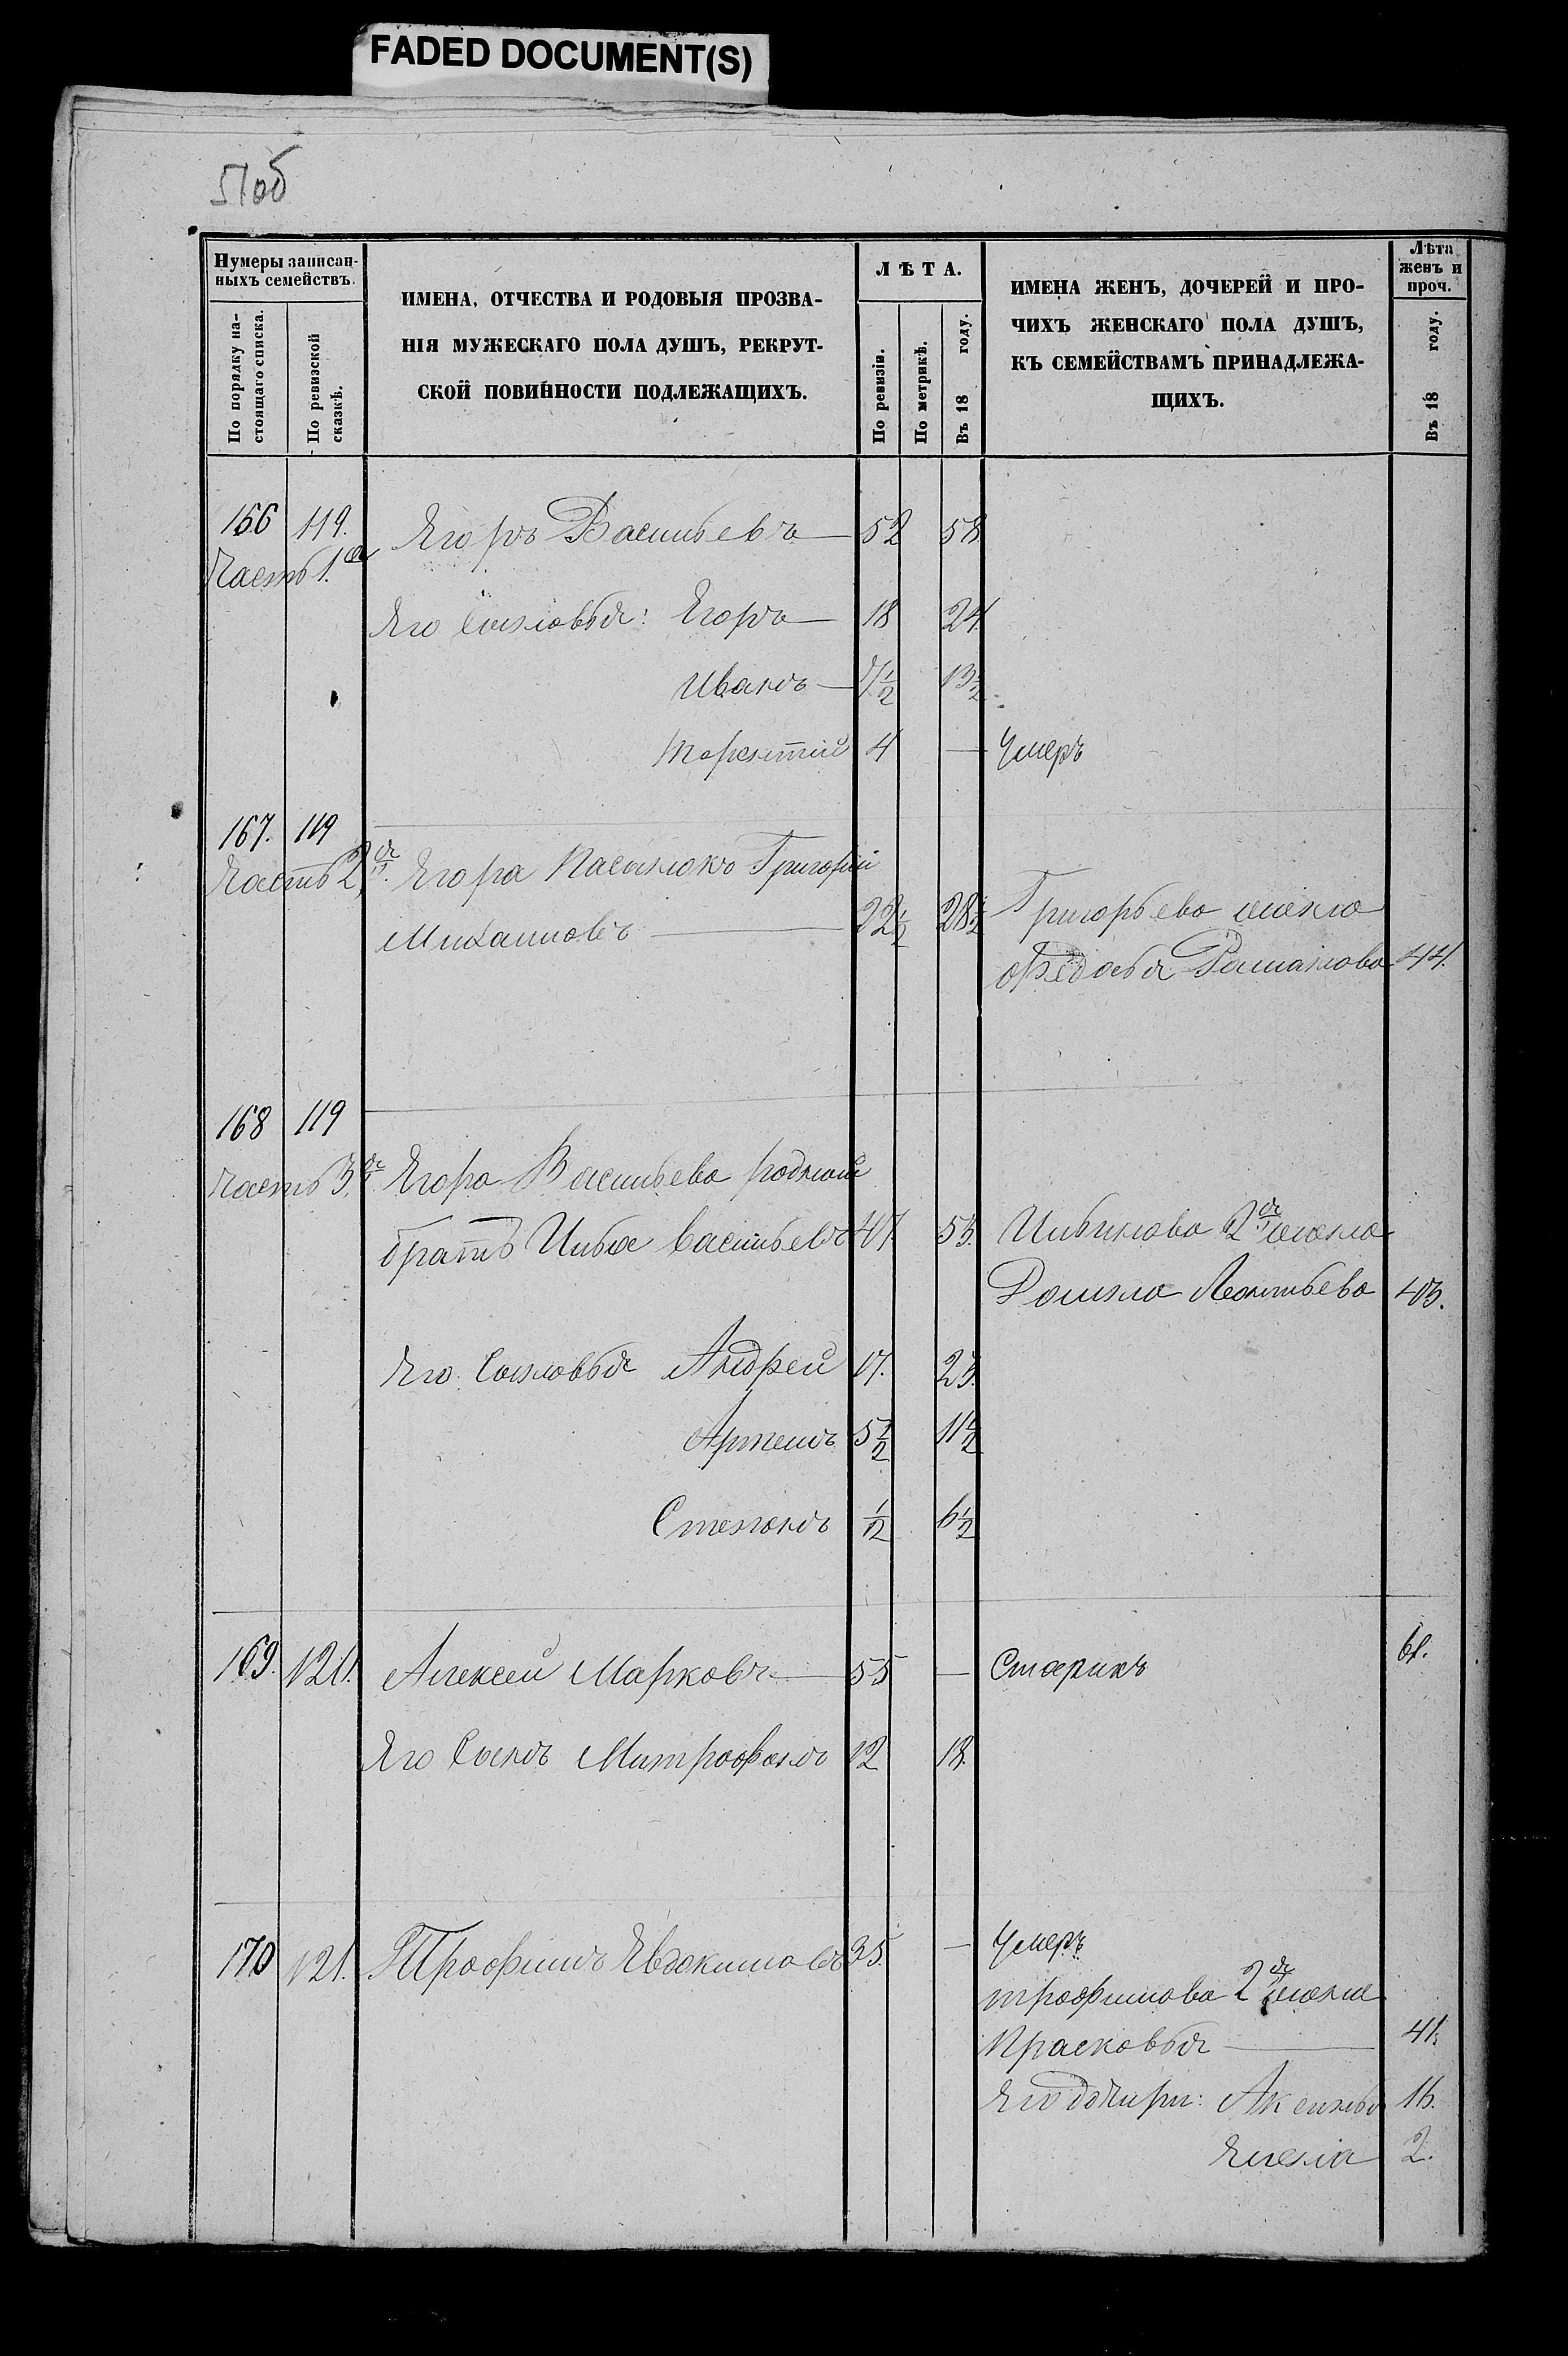 FADED DOCUMENT(S)
51об
Нумеры записан-
ныхъ семействъ.
По порядку на-
стоящаго списка.
По ревизской
сказкѣ.
ИМЕНА, ОТЧЕСТВА И РОДОВЫЯ ПРОЗВА-
НІЯ МУЖЕСКАГО ПОЛА ДУШЪ, РЕКРУТ-
СКОЙ ПОВИННОСТИ ПОДЛЕЖАЩИХЪ.
ЛѢТА.
По ревизіи.
По метрикѣ.
Въ 18 году.
ИМЕНА ЖЕНЪ, ДОЧЕРЕЙ И ПРО-
ЧИХЪ ЖЕНСКАГО ПОЛА ДУШЪ,
КЪ СЕМЕЙСТВАМЪ ПРИНАДЛЕЖА-
ЩИХЪ.
Лѣта
женъ и
проч.
Въ 18 году.
166 119. Ягоръ Васильевъ 52 58
Часть 1.я
Яго Сыновья: Егоръ 18 24.
Иванъ 7½ 13½
4 — Умеръ
167. 119
Часть 2я Ягора Пасынокъ Григорій
Михаиловъ 22½ 28½ Григорьева жена
Федосья Романова 44.
168 119
Часть 3я Ягора Васильева родной
братъ Илья Васильевъ 47 53. Ильинова 2я жена
Домна Леонтьева 43.
Яго Сыновья Андрей 17. 23.
Артемъ 5½ 11½
Степанъ ½ 6½
169. 120. Алексей Марковъ 55 — Старикъ 61.
Яго Сынъ Митрофанъ 12 18.
170 121. Трофимъ Явдокимовъ 35. — Умеръ
трофимова 2я жена
Прасковья 41.
Яго дочири: Аксинья 16.
Ялена 2.